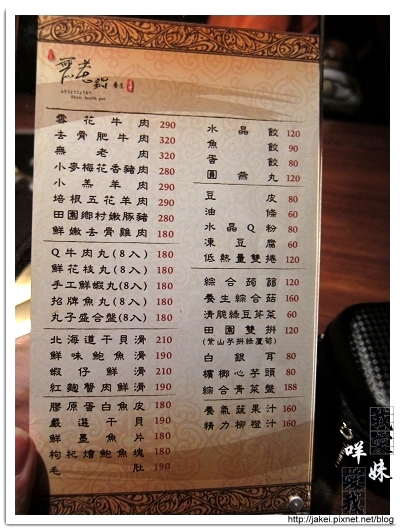 無老鍋 養生
雲花牛肉 290
去骨肥牛肉 320
無老肉 320
小麥梅花香豬肉 280
小羔羊肉 280
培根五花羊肉 280
田園鄉村嫩豚豬 280
鮮嫩去骨雞肉 180
Q牛肉丸(8入) 180
鮮花枝丸(8入) 180
手工鮮蝦丸(8入) 180
招牌魚丸(8入) 180
丸子盛合盤(8入) 180
北海道干貝滑 210
鮮味鮑魚滑 190
蝦仔鮮滑 210
紅麴蟹肉鮮滑 190
膠原蛋白魚皮 180
嚴選干貝 210
鮮墨魚片 180
枸杞燴鮑魚塊 180
毛肚 190
水晶餃 120
魚餃 90
蛋餃 80
圓燕丸 120
豆皮 80
油條 60
水晶Q粉 80
凍豆腐 60
低熱量雙捲 120
綜合蒟蒻 120
養生綜合菇 160
清脆綠豆芽菜 50
田園雙拼 120
(紫山芋拼綠蘆筍)
白銀耳 80
檳榔心芋頭 80
綜合青菜盤 188
養氣蔬果汁 160
精力柳橙汁 160
咩妹
© http://jakei.pixnet.net/blog